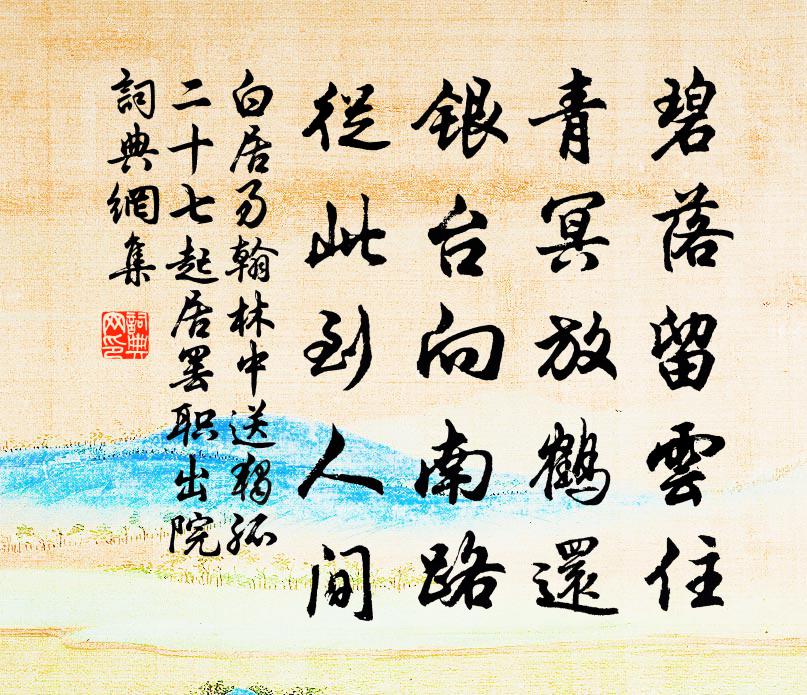 碧落留雲住
青冥放鶴還
銀台向南路
從此到人間
白居易翰林中送獨孤
二十七起居罷職出院
詞典網集
詞典网印